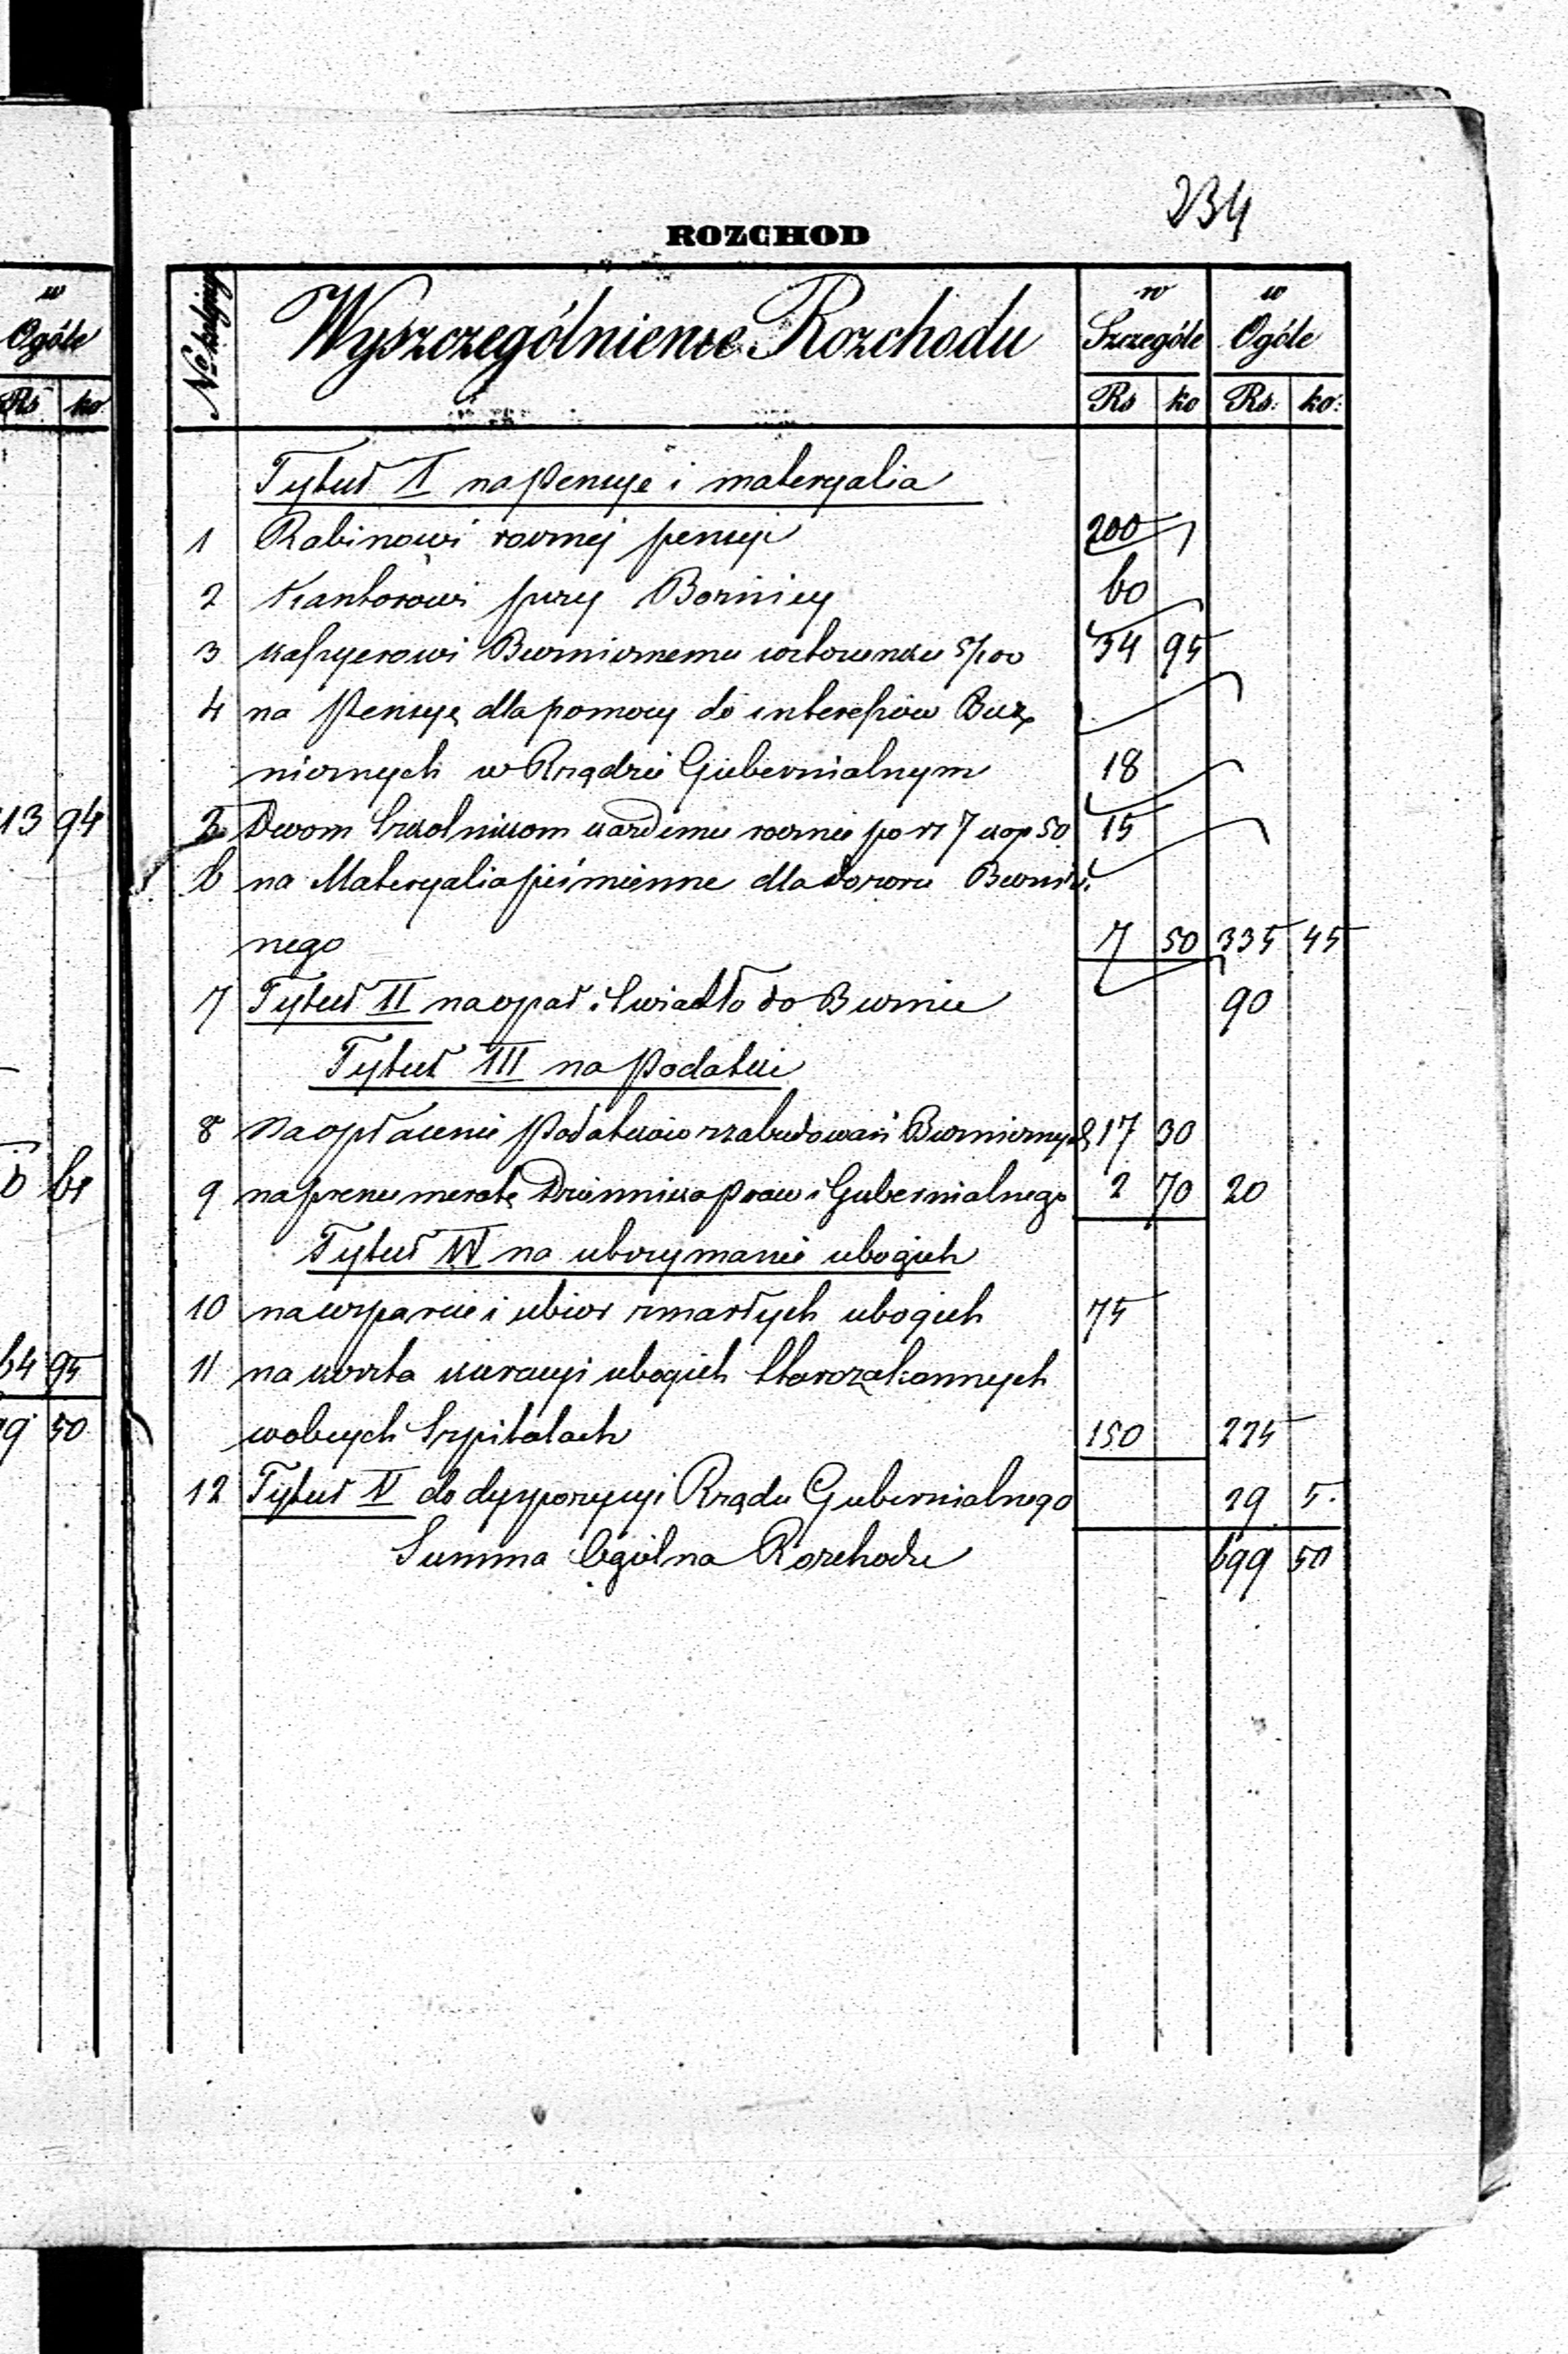 234
ROZCHOD
w
Ogóle
Rs ko
No kolejny
Wyszczególnienie Rozchodu
w Szczególe
w Ogóle
Rs ko Rs: ko:
Tytuł I na pensye i materyalia
1 Rabinowi rocznej pensyi 200
2 Kantorowi przy Bożnicy 60
3 Kassyerowi Bużnicznemu w stosunku 5/100 34 95
4 na Pensyę dla pomocy do interessów Buż
nicznych w Rządzie Gubernialnym 18
5 Dwom Szkolnikom każdemu rocznie po rs 7 kop 50 15
6 na Materyalia piśmienne dla dozoru Bużni
nego 7 50 335 45
7 Tytuł II na opał i Swiatło do Bużnic 90
Tytuł III na Podatki
8 Na opłacenie Podatków z zabudowań Bużnicznych 17 30
9 na prenumeratę Dziennika Praw i Gubernialnego 2 70 20
Tytuł IV na utrzymanie ubogich
10 na wsparcie i ubior zmarłych ubogich 75
11 na koszta kuracyi ubogich Starozakonnych
w obcych Szpitalach 150 225
12 Tytuł V do dyspozycyi Rządu Gubernialnego 29 5.
Summa Ogólna Rozchodu 699 50
13 94
64 95
50